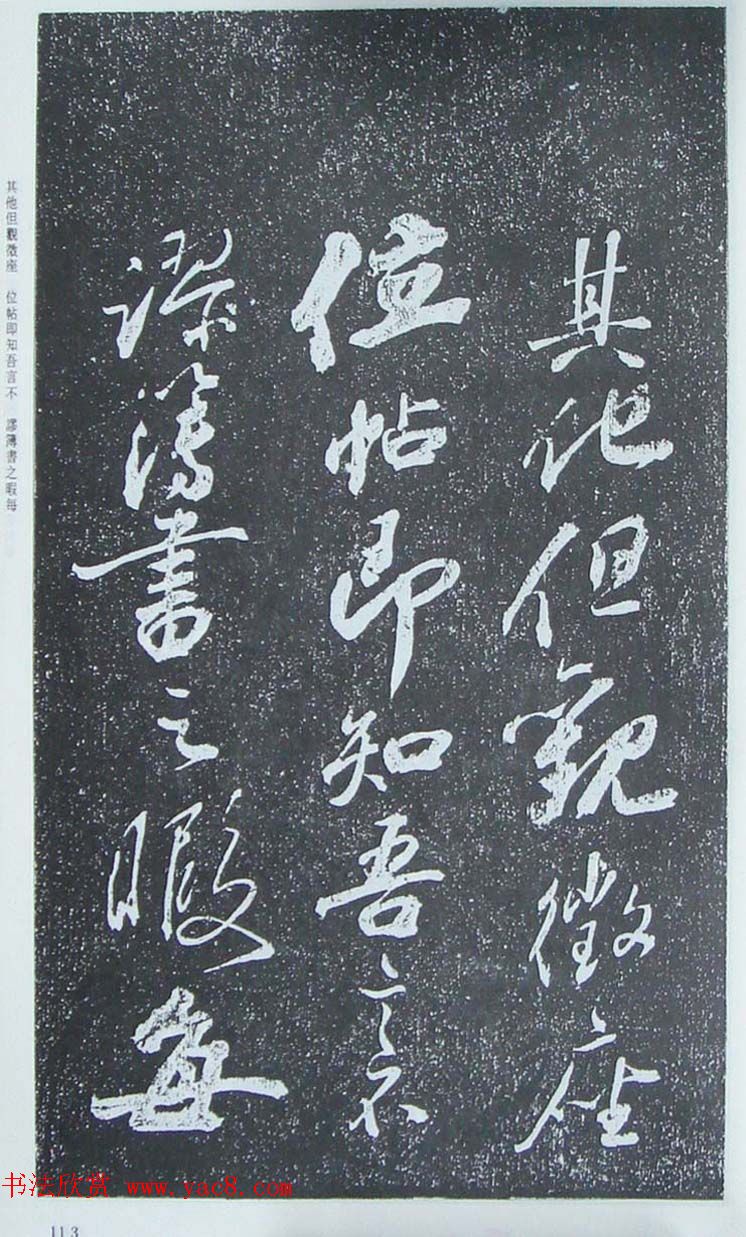 其他但觀徵座
位帖即知吾言不
謬簿書之暇每
其他但觀微座 位帖即知吾言不 謬簿書之暇每
书法欣赏 www.yac8.com
113